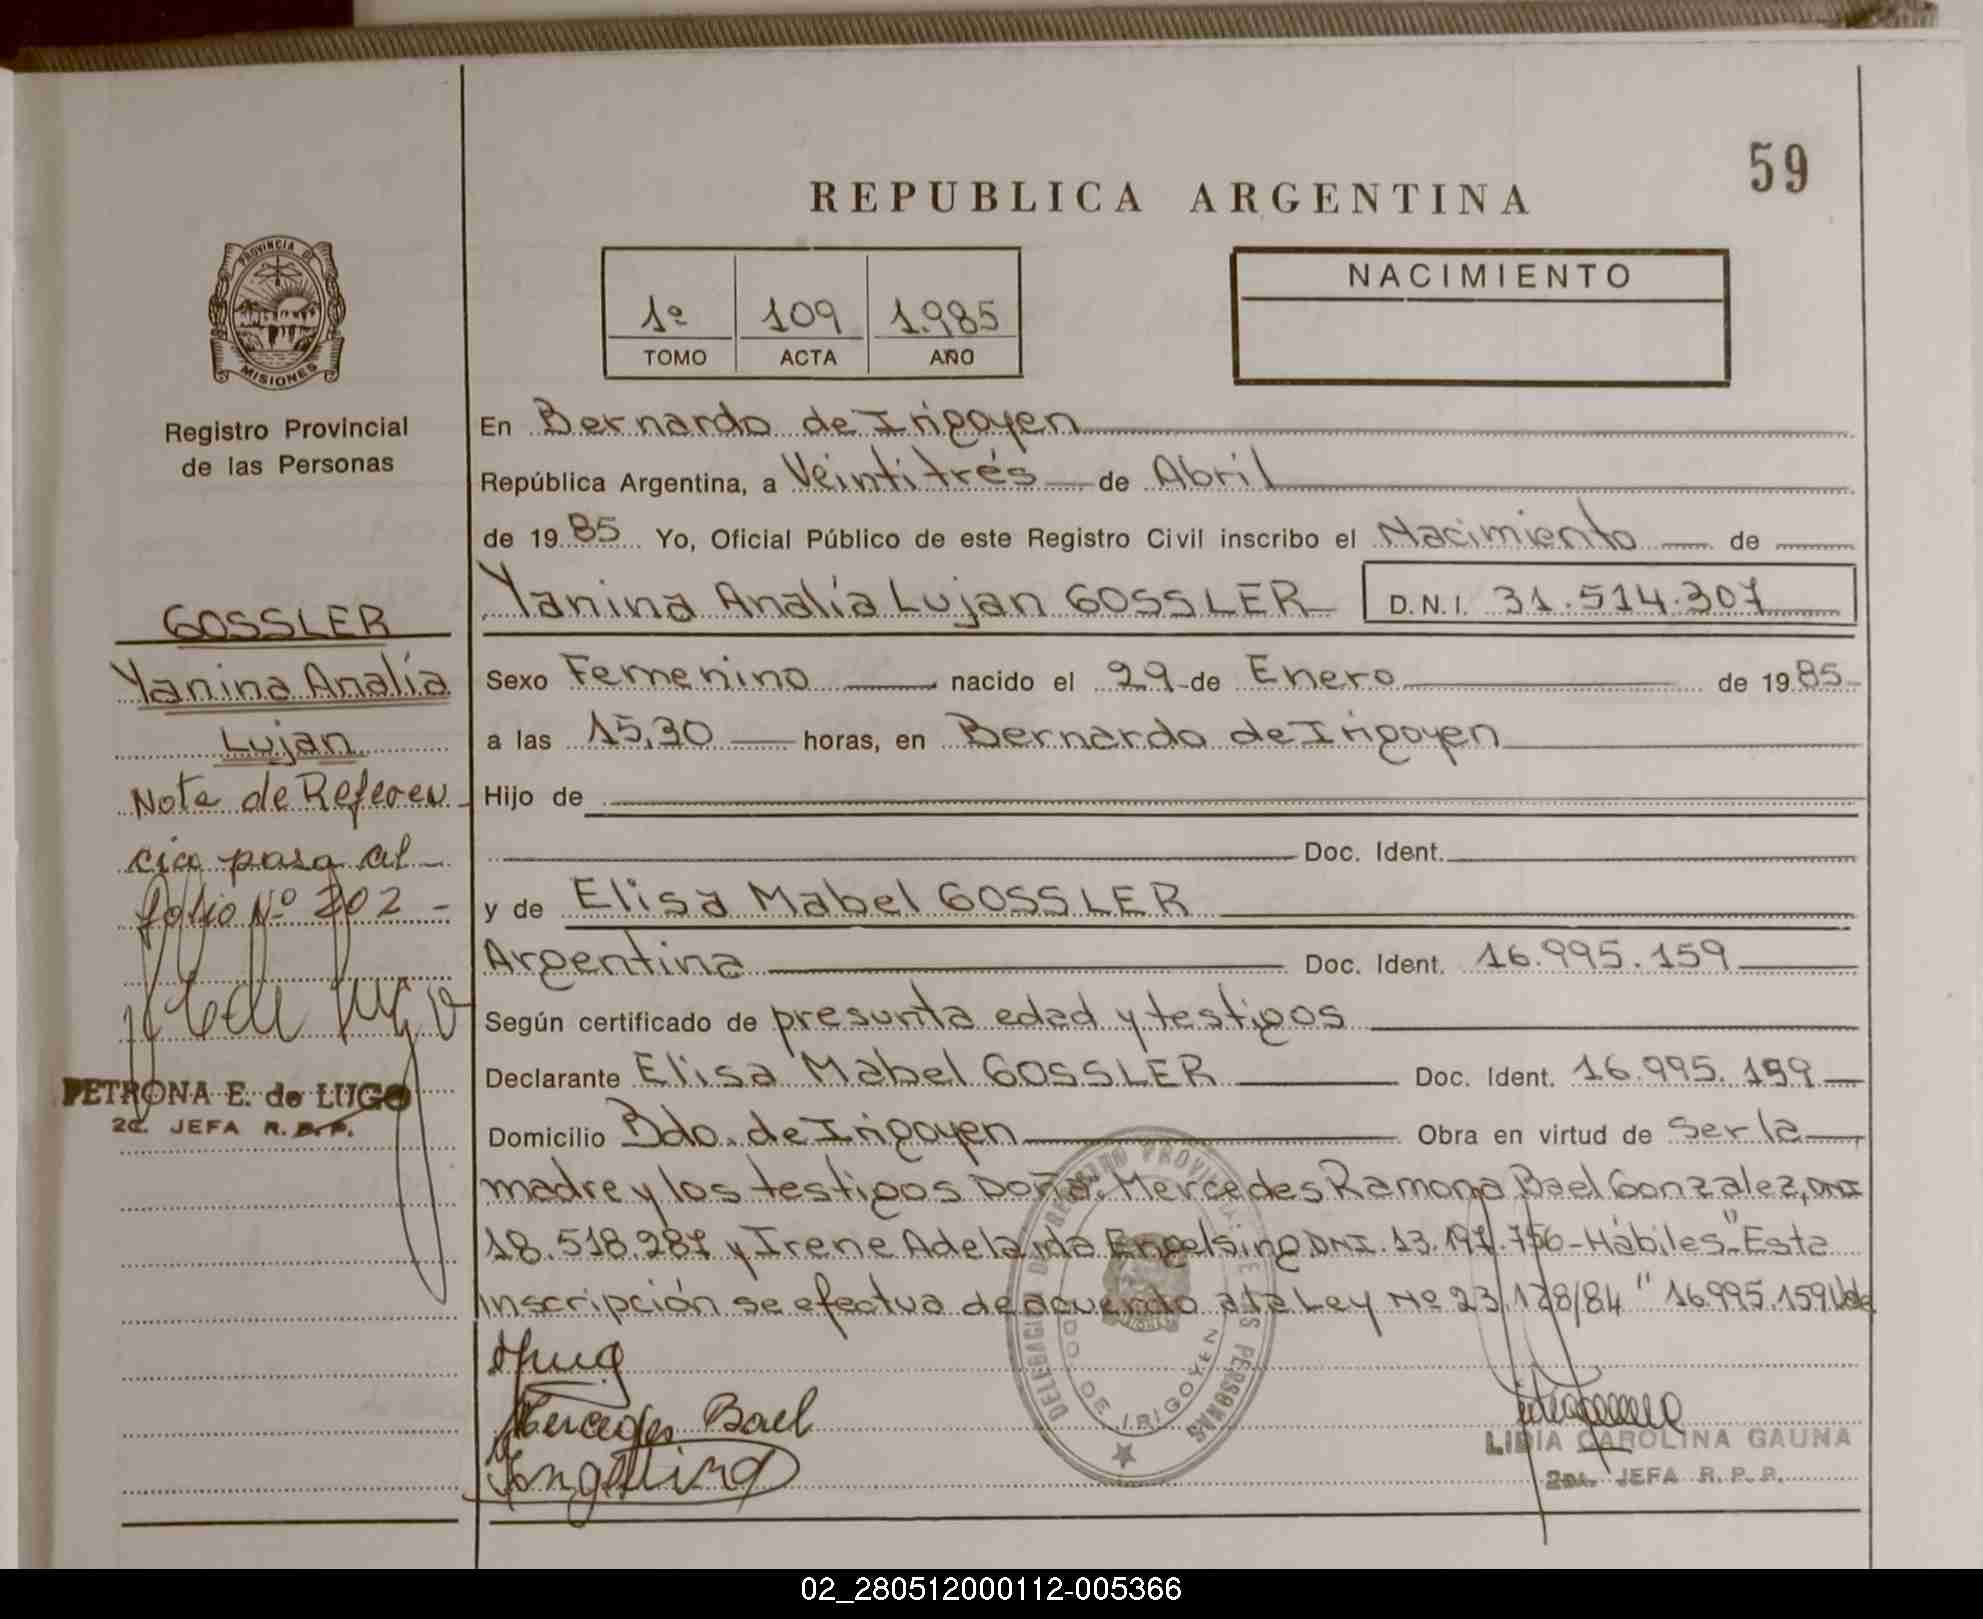 59
REPUBLICA ARGENTINA
PROVINCIA DE
MISIONES
1º 109 1.985
TOMO ACTA AÑO
NACIMIENTO
Registro Provincial
de las Personas
GOSSLER
Yanina Analía
Lujan
Nota de Referen
cia para al
folio Nº 202 -
PETRONA E. de LUGO
2a. JEFA R. P. P.
En Bernardo de Irigoyen
República Argentina, a Veintitrés de Abril
de 1985 Yo, Oficial Público de este Registro Civil inscribo el Nacimiento de
Yanina Analía Lujan GOSSLER D.N.I. 31.514.307
Sexo Femenino nacido el 29 de Enero de 1985
a las 15,30 horas, en Bernardo de Irigoyen
Hijo de
Doc. Ident.
y de Elisa Mabel GOSSLER
Argentina Doc. Ident. 16.995.159
Según certificado de presunta edad y testigos
Declarante Elisa Mabel GOSSLER Doc. Ident. 16.995.199
Domicilio Bdo. de Irigoyen Obra en virtud de ser la
madre y los testigos Doña. Mercedes Ramona Bael Gonzalez, DNI
18.518.287 y Irene Adelaida Engelsing DNI. 13.197.756 - Hábiles "Esta
inscripción se efectua de acuerdo a la Ley Nº 23.128/84" 16.995.159 Vale
Mercedes Bael
Engelsing
DELEGACION DE REGISTRO PROVINCIAL DE LAS PERSONAS
BDO. DE IRIGOYEN
LIDIA CAROLINA GAUNA
2da. JEFA R. P. P.
02_280512000112-005366